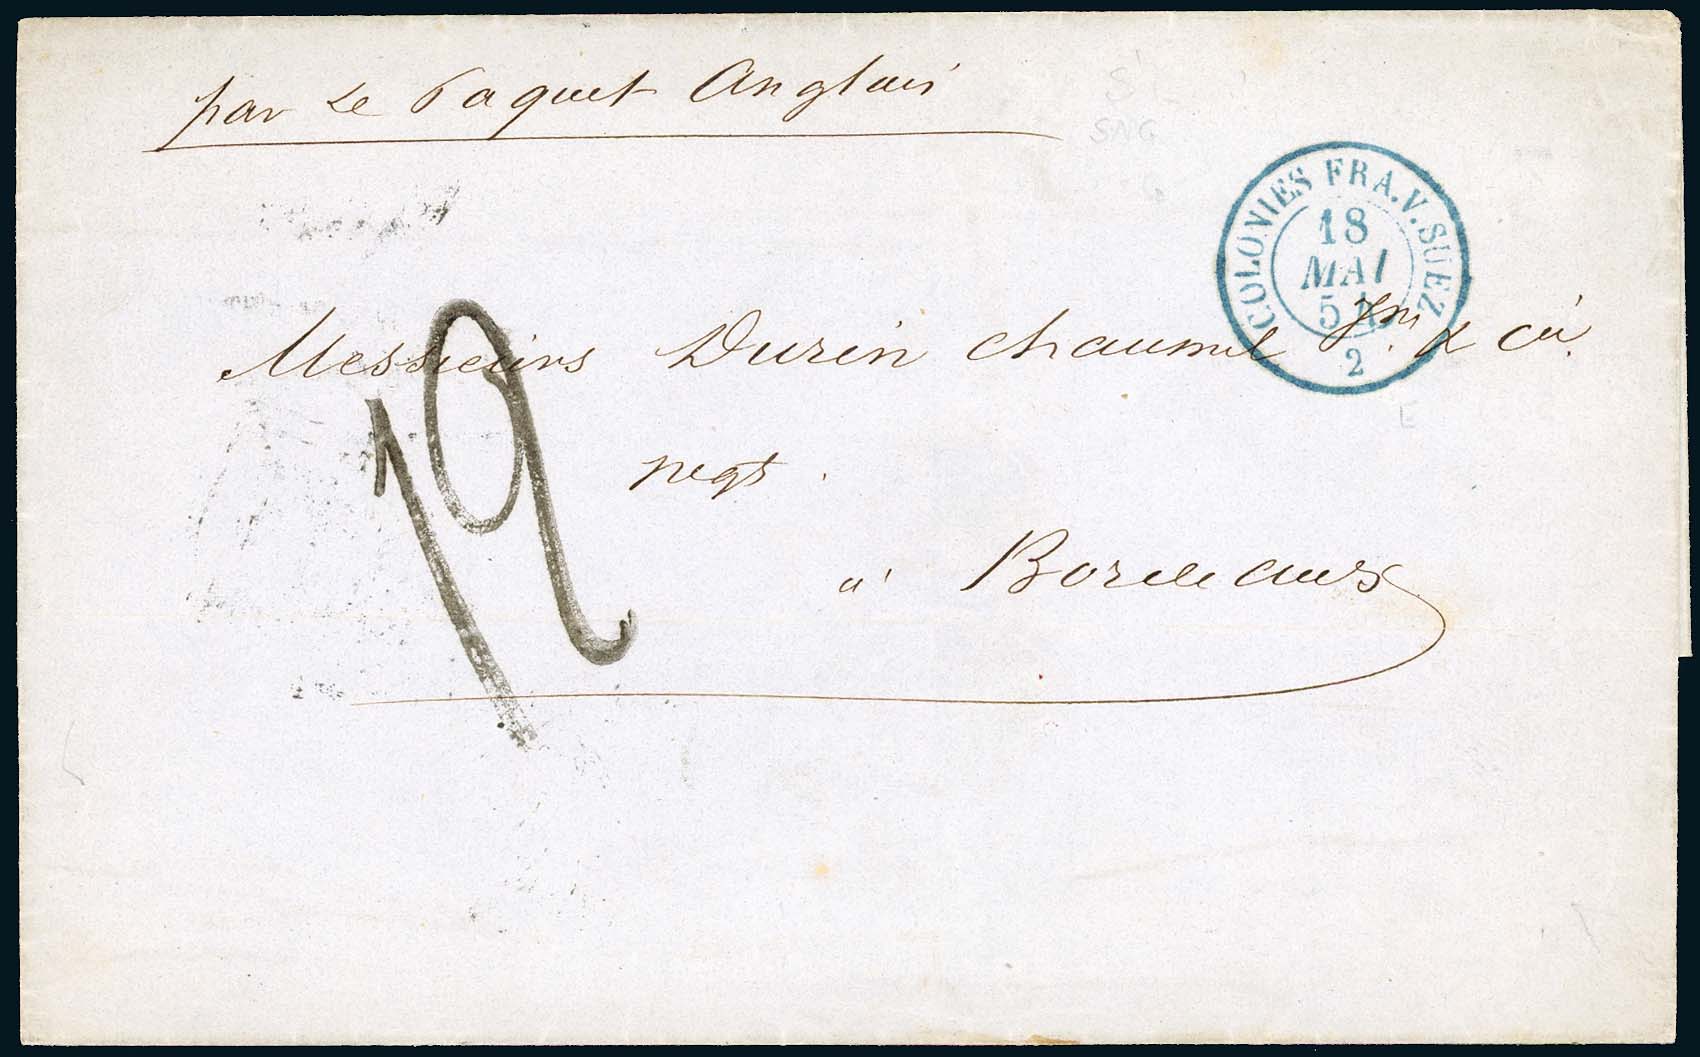 par Le Paquet Anglais
COLONIES FRA. V. SUEZ
18
MAI
54
2
Messieurs Durin Chaumel Jne & Cie
negts
à Bordeaux
12
SNG